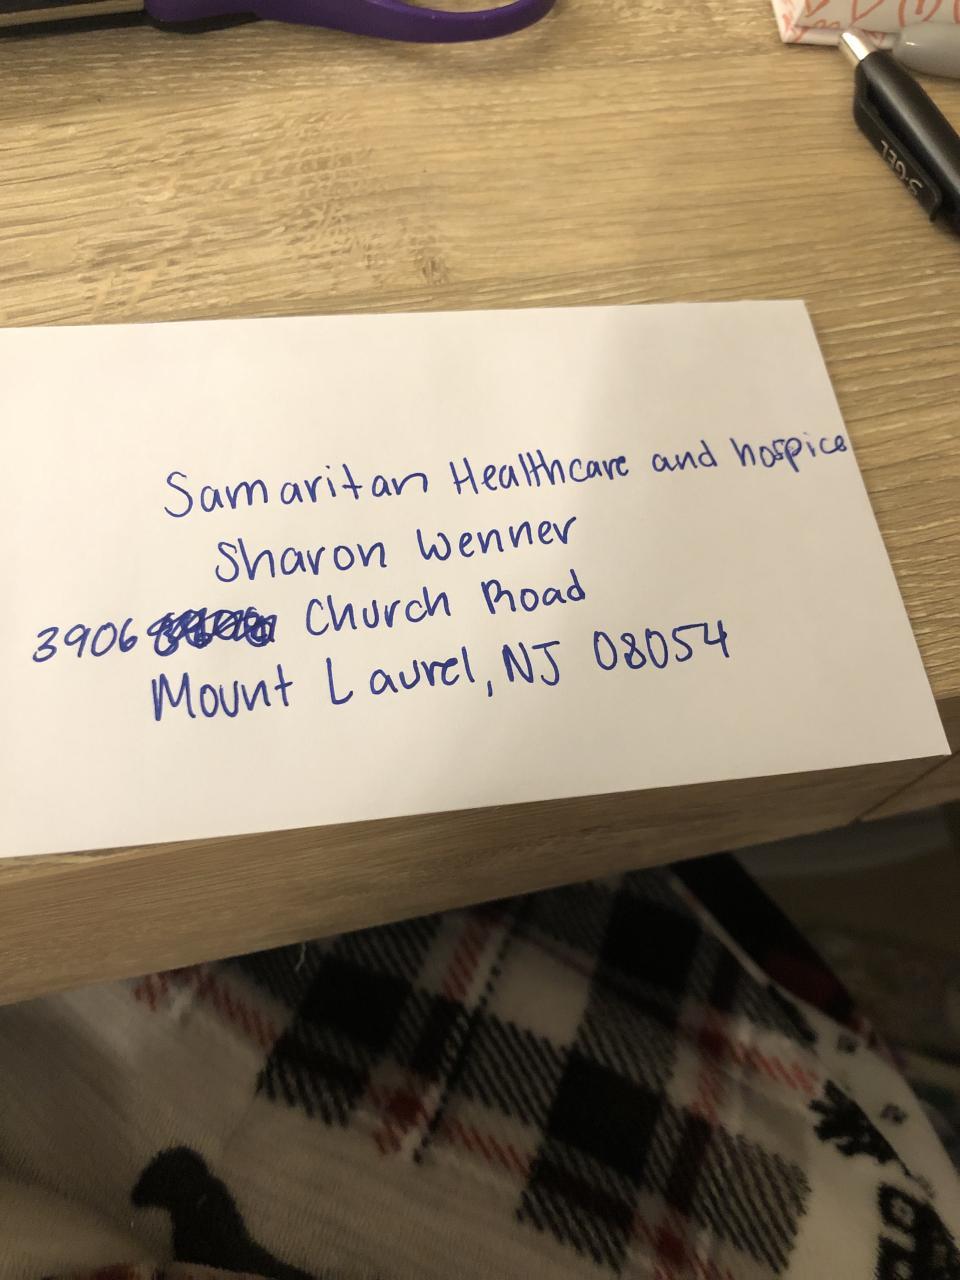 S·GEL
Samaritan Healthcare and hospice
Sharon Wenner
3906 Church Road
Mount Laurel, NJ 08054